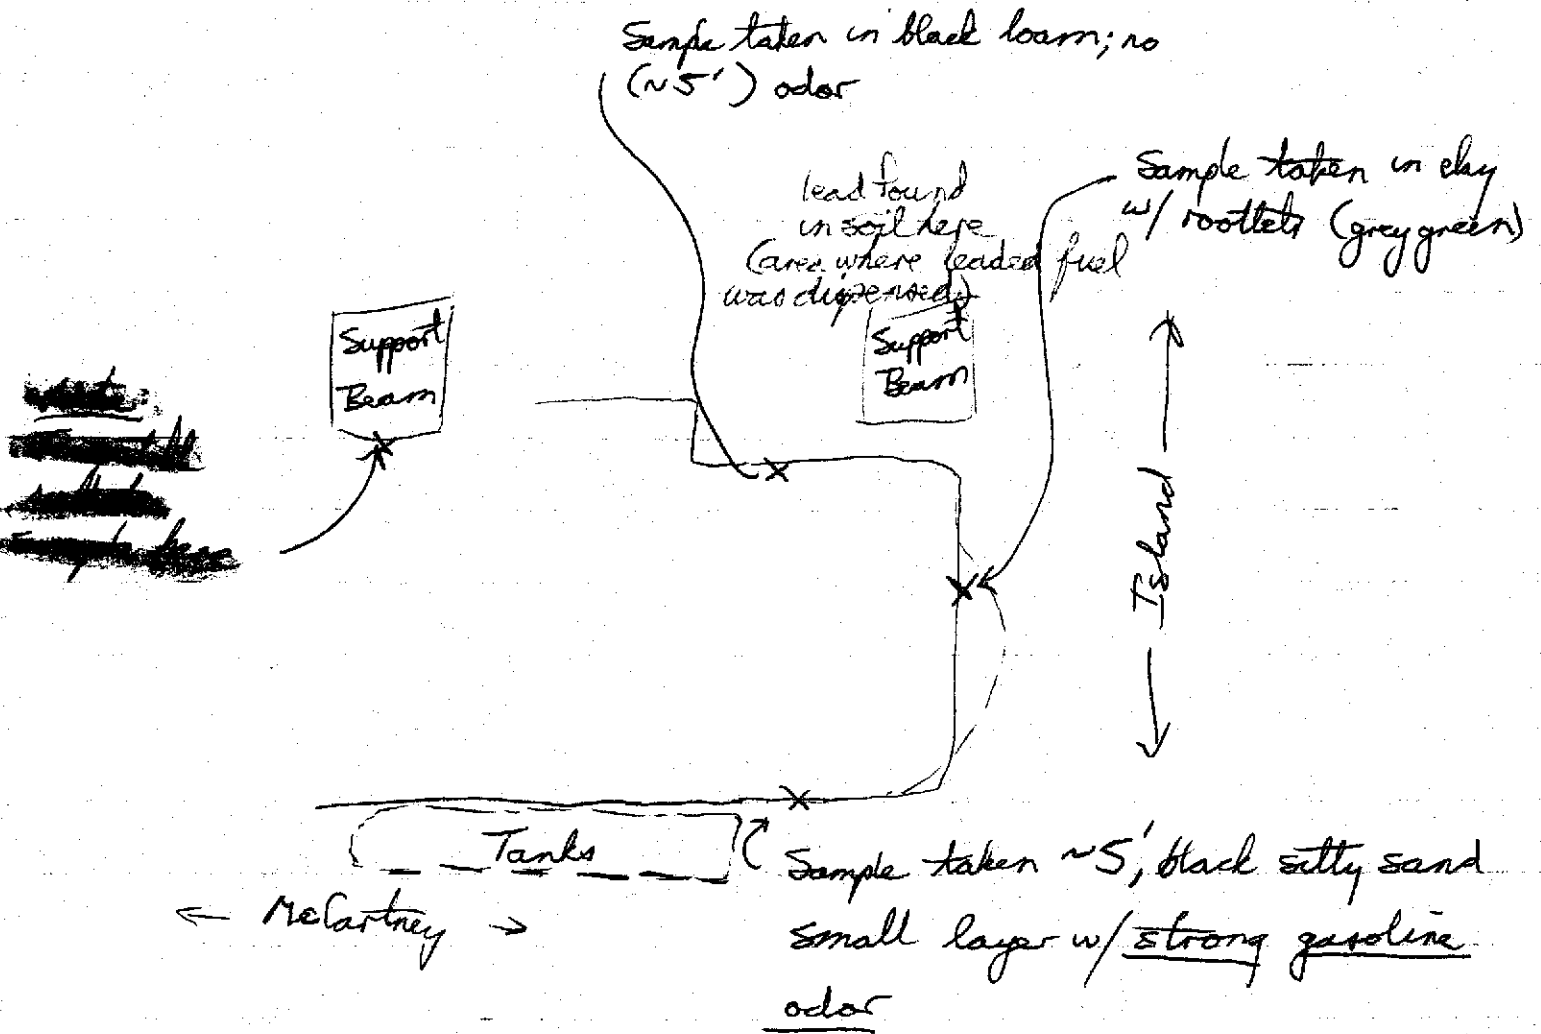 Sample taken in black loam; no
(~5') odor
lead found
in soil here
(area where leaded fuel
was dispensed)
Sample taken in clay
w/ rootlets (grey green)
Support
Beam
Support
Beam
Island
Tanks
McCartney
Sample taken ~5', black silty sand
small layer w/ strong gasoline
odor